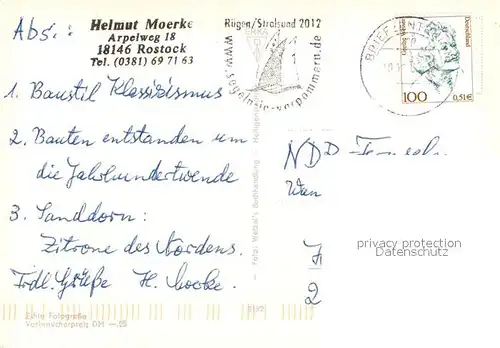 Abs.:
Helmut Moerke
Arpelweg 18
18146 Rostock
Tel. (0381) 69 71 63
Rügen/Stralsund 2012
www.segeln-in-vorpommern.de
BRIEFZENTR
Deutschland
100
0,51€
1. Baustil Klassizismus
2. Bauten entstanden um
die Jahrhundertwende
3. Sanddorn:
Zitrone des Nordens.
Frdl. Grüße H. Moerke.
NDR
privacy protection
Datenschutz
2
Echte Fotografie
Verbraucherpreis DM -,25